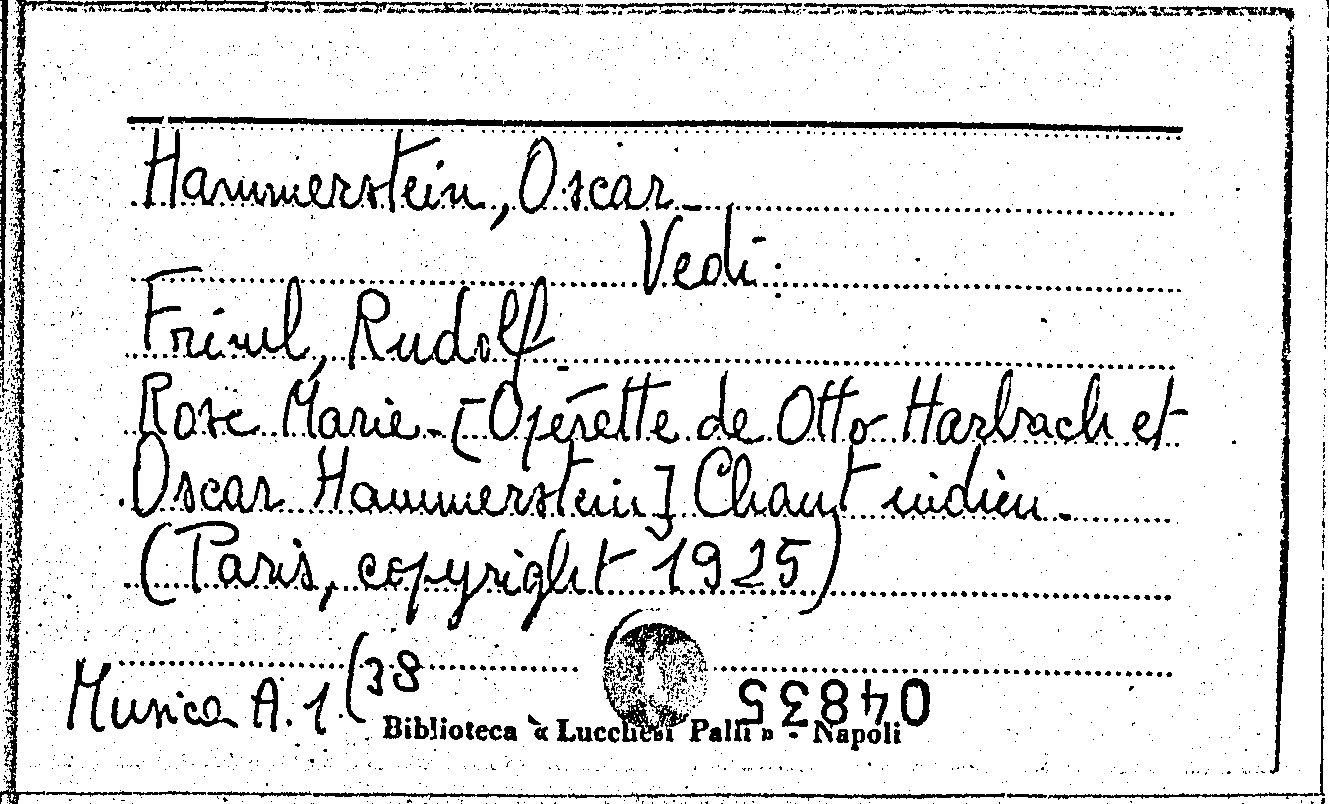 Hammerstein, Oscar_
Vedi:
Friml, Rudolf_
Rose Marie_[Opérette de Otto Harbach et
Oscar Hammerstein] Chant indien_
(Paris, copyright 1925)
Musica A.1.(38
04835
Biblioteca « Lucchesi Palli » - Napoli